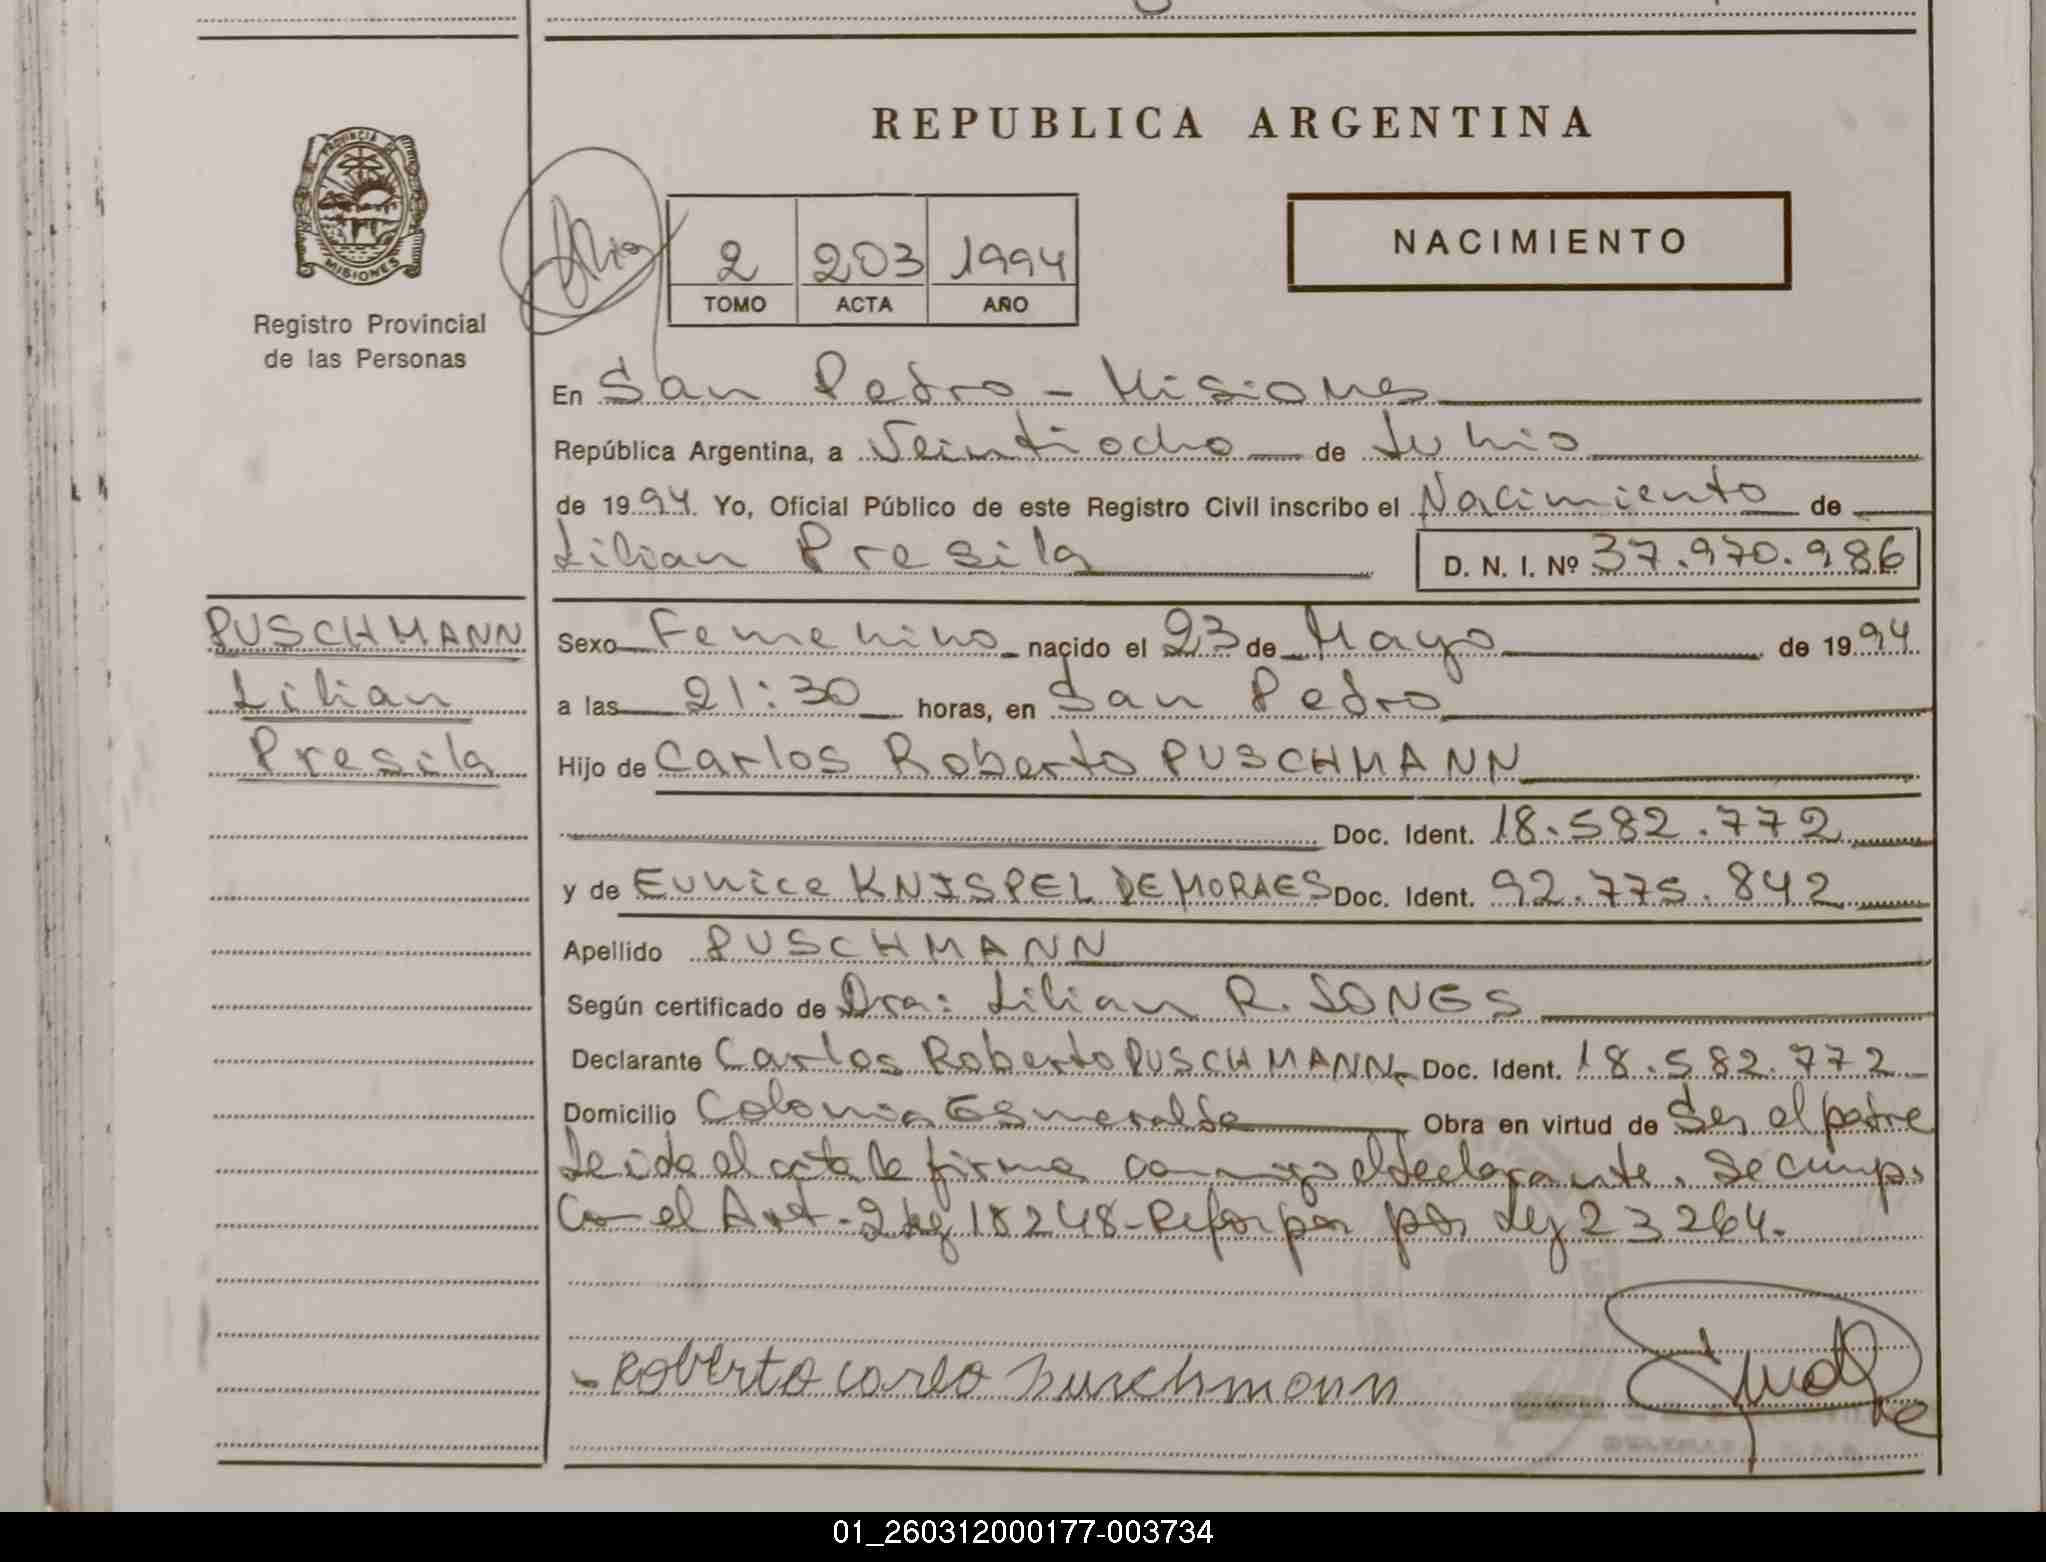 REPUBLICA ARGENTINA
PROVINCIA DE
MISIONES
Registro Provincial
de las Personas
2 203 1994
TOMO ACTA AÑO
NACIMIENTO
En San Pedro - Misiones
República Argentina, a Veintiocho de Junio
de 1994. Yo, Oficial Público de este Registro Civil inscribo el Nacimiento de
Lilian Presila D. N. I. Nº 37.970.986
PUSCHMANN
Lilian
Presila
Sexo Femenino nacido el 23 de Mayo de 1994
a las 21:30 horas, en San Pedro
Hijo de Carlos Roberto PUSCHMANN
Doc. Ident. 18.582.772
y de Eunice KNISPEL DE MORAES Doc. Ident. 92.775.842
Apellido PUSCHMANN
Según certificado de Dra: Lilian R. SONGS
Declarante Carlos Roberto PUSCHMANN Doc. Ident. 18.582.772
Domicilio Colonia Esmeralda Obra en virtud de Ser el padre
Leida el acta la firma conmigo el declarante. Se cump.
Con el Art. 2 Ley 18248 - por Ley 23264.
Roberto carlo puschmann
01_260312000177-003734